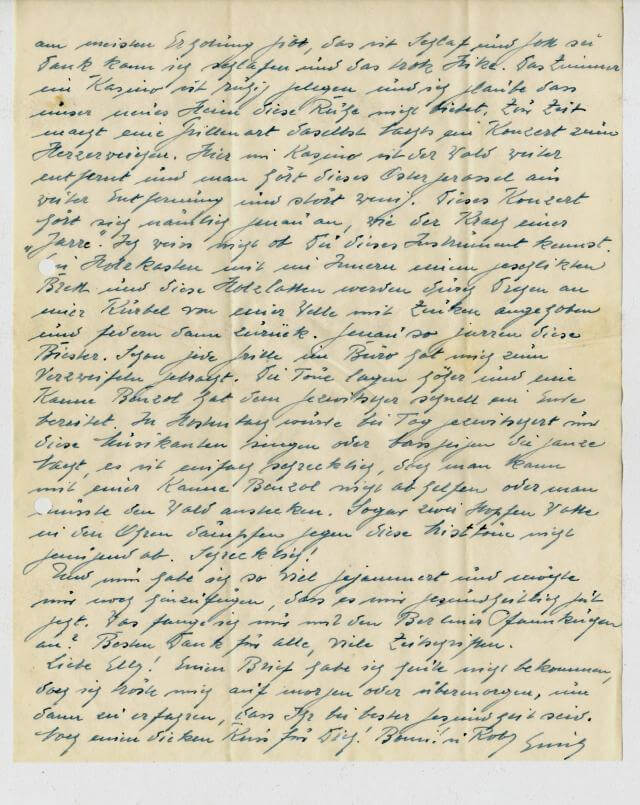 am meisten Erholung gibt, das ist Schlaf und Gott sei
Dank kann ich schlafen und das trotz Hitze. Das Zimmer
im Kasino ist ruhig gelegen und ich glaube dass
unser neues Heim diese Ruhe nicht bietet. Zur Zeit
macht eine Grillenart daselbst nachts ein Konzert zum
Herzerweichen. Hier im Kasino ist der Wald weiter
entfernt und man hört dieses Ostergerassel aus
weiter Entfernung und stört wenig. Dieses Konzert
hört sich nämlich genau an, wie der Krach einer
„Jarre". Ich weiss nicht ob Du dieses Instrument kennst.
Ein Holzkasten mit im Innern einem geschlitzten
Brett und diese Holzlatten werden durch Drehen an
einer Kurbel von einer Welle mit Zinken angehoben
und federn dann zurück. Genau so jarren diese
Biester. Schon jede Grille im Büro hat mich zum
Verzweifeln gebracht. Die Töne lagen höher und eine
Kanne Benzol hat dem Gezwitscher schnell ein Ende
bereitet. In würde bei Tag gezwitschert und
diese Musikanten singen oder bassgeigen die ganze
Nacht, es ist einfach schrecklich, doch man kann
mit einer Kanne Benzol nicht abhelfen oder man
müsste den Wald anstecken. Sogar zwei Watte
in den Ohren dämpfen gegen diese Misttöne nicht
genügend ab. Schrecklich!
Und nun habe ich so viel gejammert und möchte
nur noch hinzufügen, dass es mir gesundheitlich gut
geht. Was fange ich nur mit den Berliner Pfannkuchen
an? Besten Dank für alle, viele Zeitschriften.
Liebe Elly! Einen Brief habe ich heute nicht bekommen,
doch ich tröste mich auf morgen oder übermorgen, um
dann zu erfahren, dass Ihr bei bester Gesundheit seid.
Noch einen dicken Kuss für Dich!